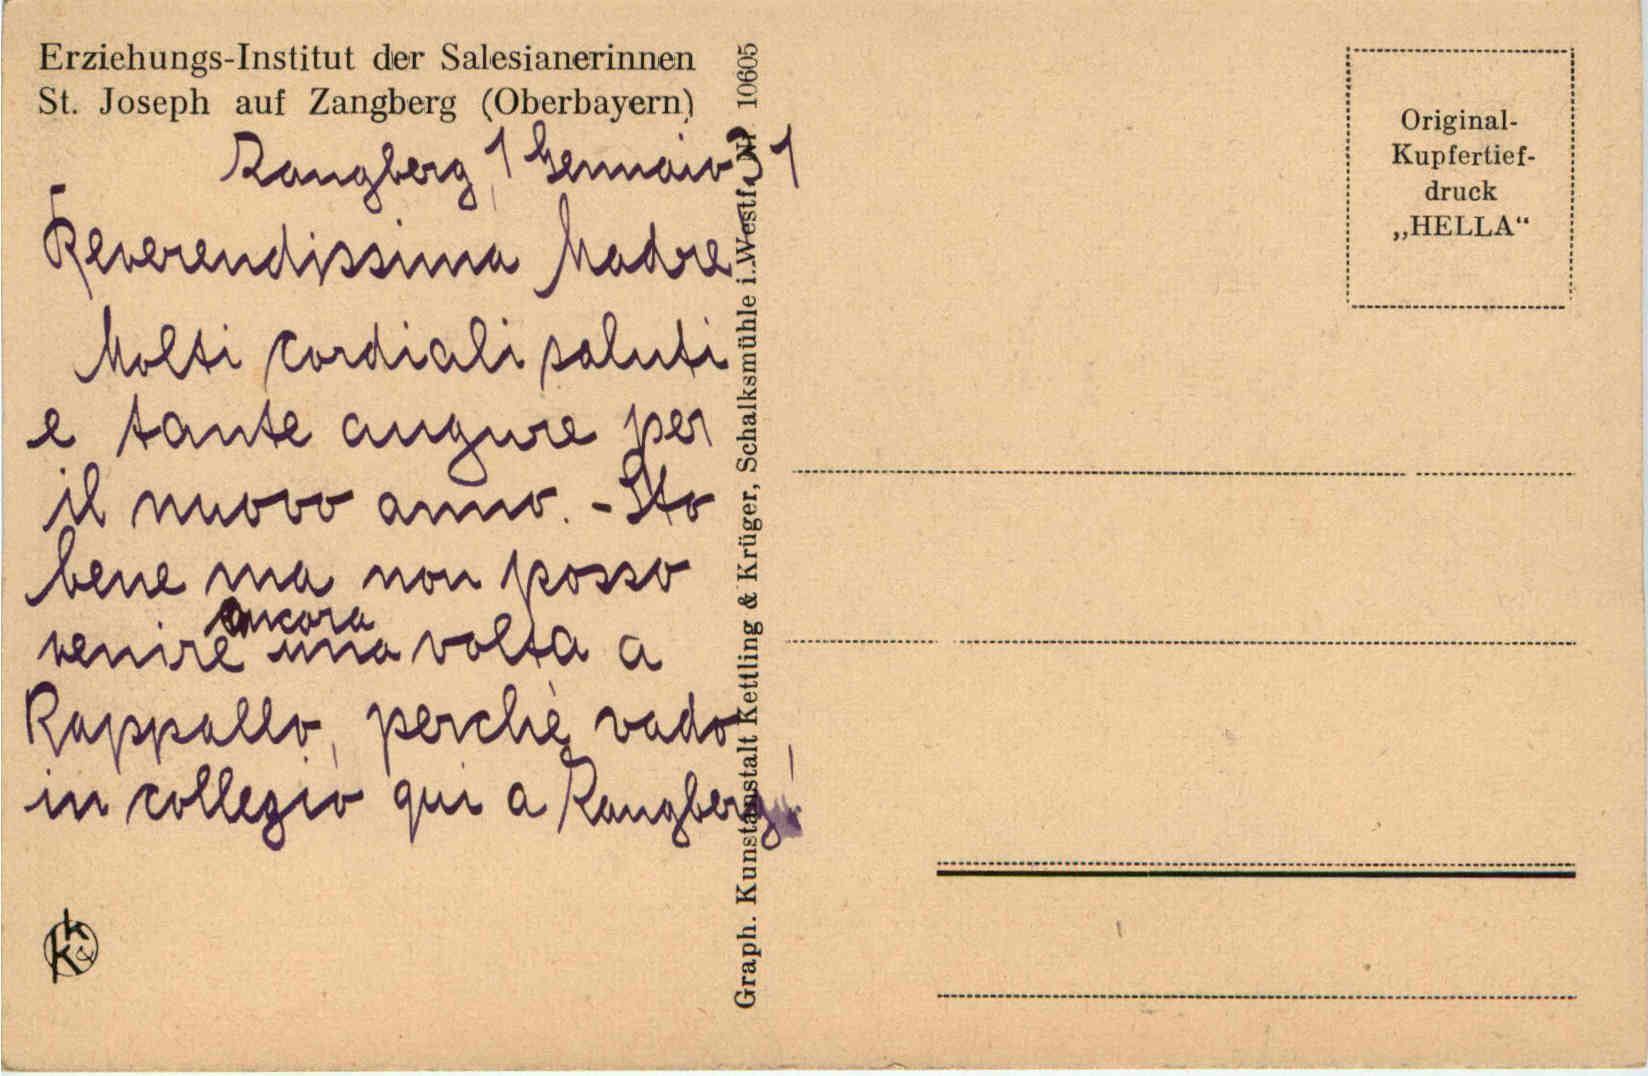 Erziehungs-Institut der Salesianerinnen
St. Joseph auf Zangberg (Oberbayern)
Zangberg, 1 Gennaio 31
Reverendissima Madre
Molti cordiali saluti
e tante augure per
il nuovo anno. - Sto
bene ma non posso
ancora
venire una volta a
Rappallo, perchè vado
in collegio qui a Zangberg!
k & k
Graph. Kunstanstalt Kettling & Krüger, Schalksmühle i. Westf. Nr. 10605
Original-
Kupfertief-
druck
„HELLA“